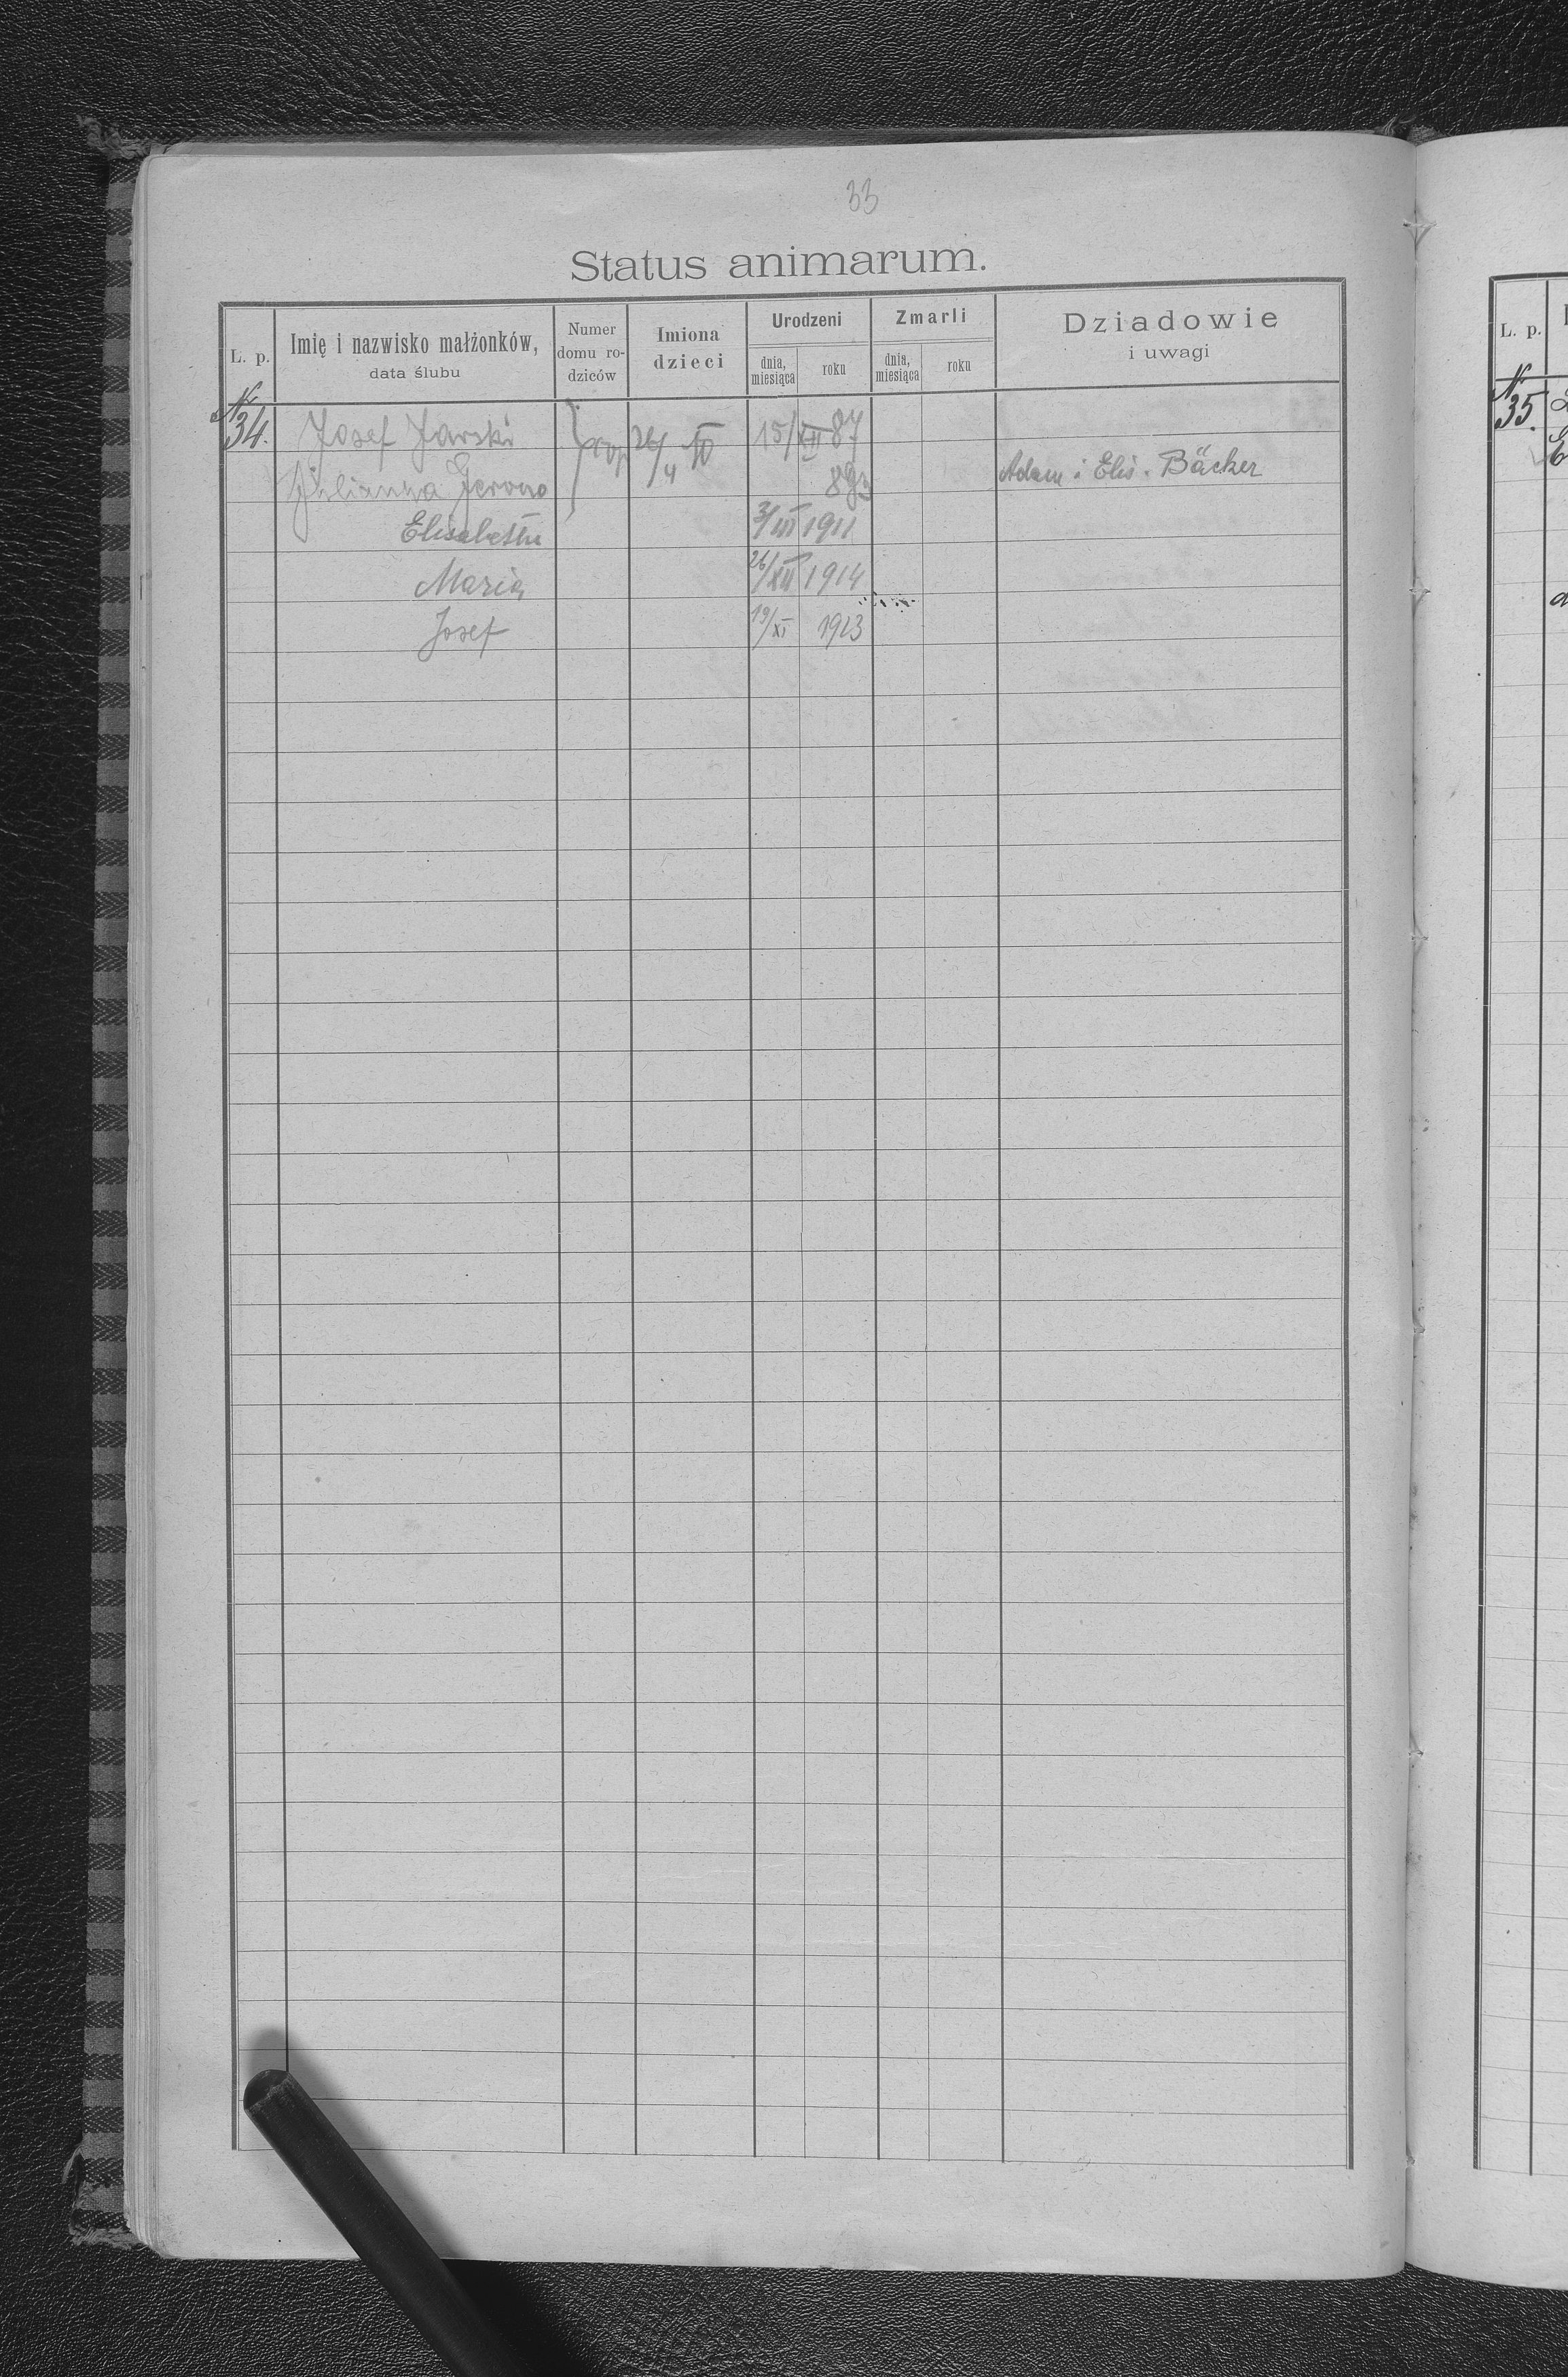 33
Status animarum.
L. p.
Imię i nazwisko małżonków, data ślubu
Numer domu rodziców
Imiona dzieci
Urodzeni
dnia, miesiąca
roku
Zmarli
dnia, miesiąca
roku
Dziadowie i uwagi
N 34. Josef Jarski 26/4 10 15/XII 87
Julianna 893 Adam i Elis. Bäcker
Elisabetha 3/III 1911
Maria 26/XII 1914
Josef 19/XI 1913
L. p.
N 35.